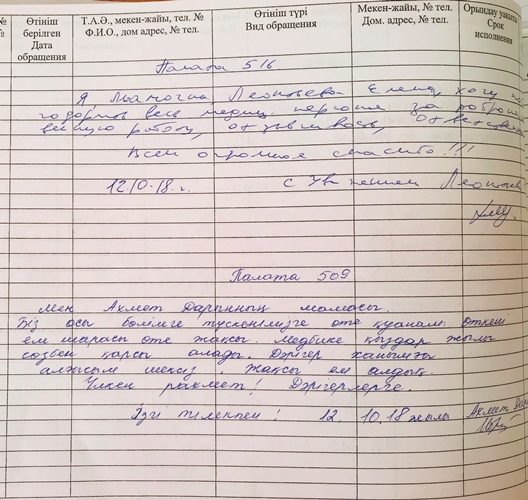 №
Өтініш берілген Дата обращения
Т.А.Ә., мекен-жайы, тел. № Ф.И.О., дом адрес, № тел.
Өтініш түрі Вид обращения
Мекен-жайы, № тел. Дом. адрес, № тел.
Орындау уақыты Срок исполнения
Палата 516
Я, Леонтьева Елена, хочу
весь медиц. персонал за
работу, отзывчивость,
Всем огромное спасибо!!!
12.10.18 г. с уважением
Палата 509
Мен Ахмет Дарынның мамасы.
Біз осы бөлімге түскенімізге өте қуанам. өткені
ем шарасы өте жақсы. Медбике қыздар жылы
сөзбен қарсы алады. Дәрігер ханымға
алғысым шексіз. Жақсы ем алдық.
Үлкен рахмет! Дәрігерлерге.
Ізгі тілекпен! 12. 10.18 жылы Ахмет